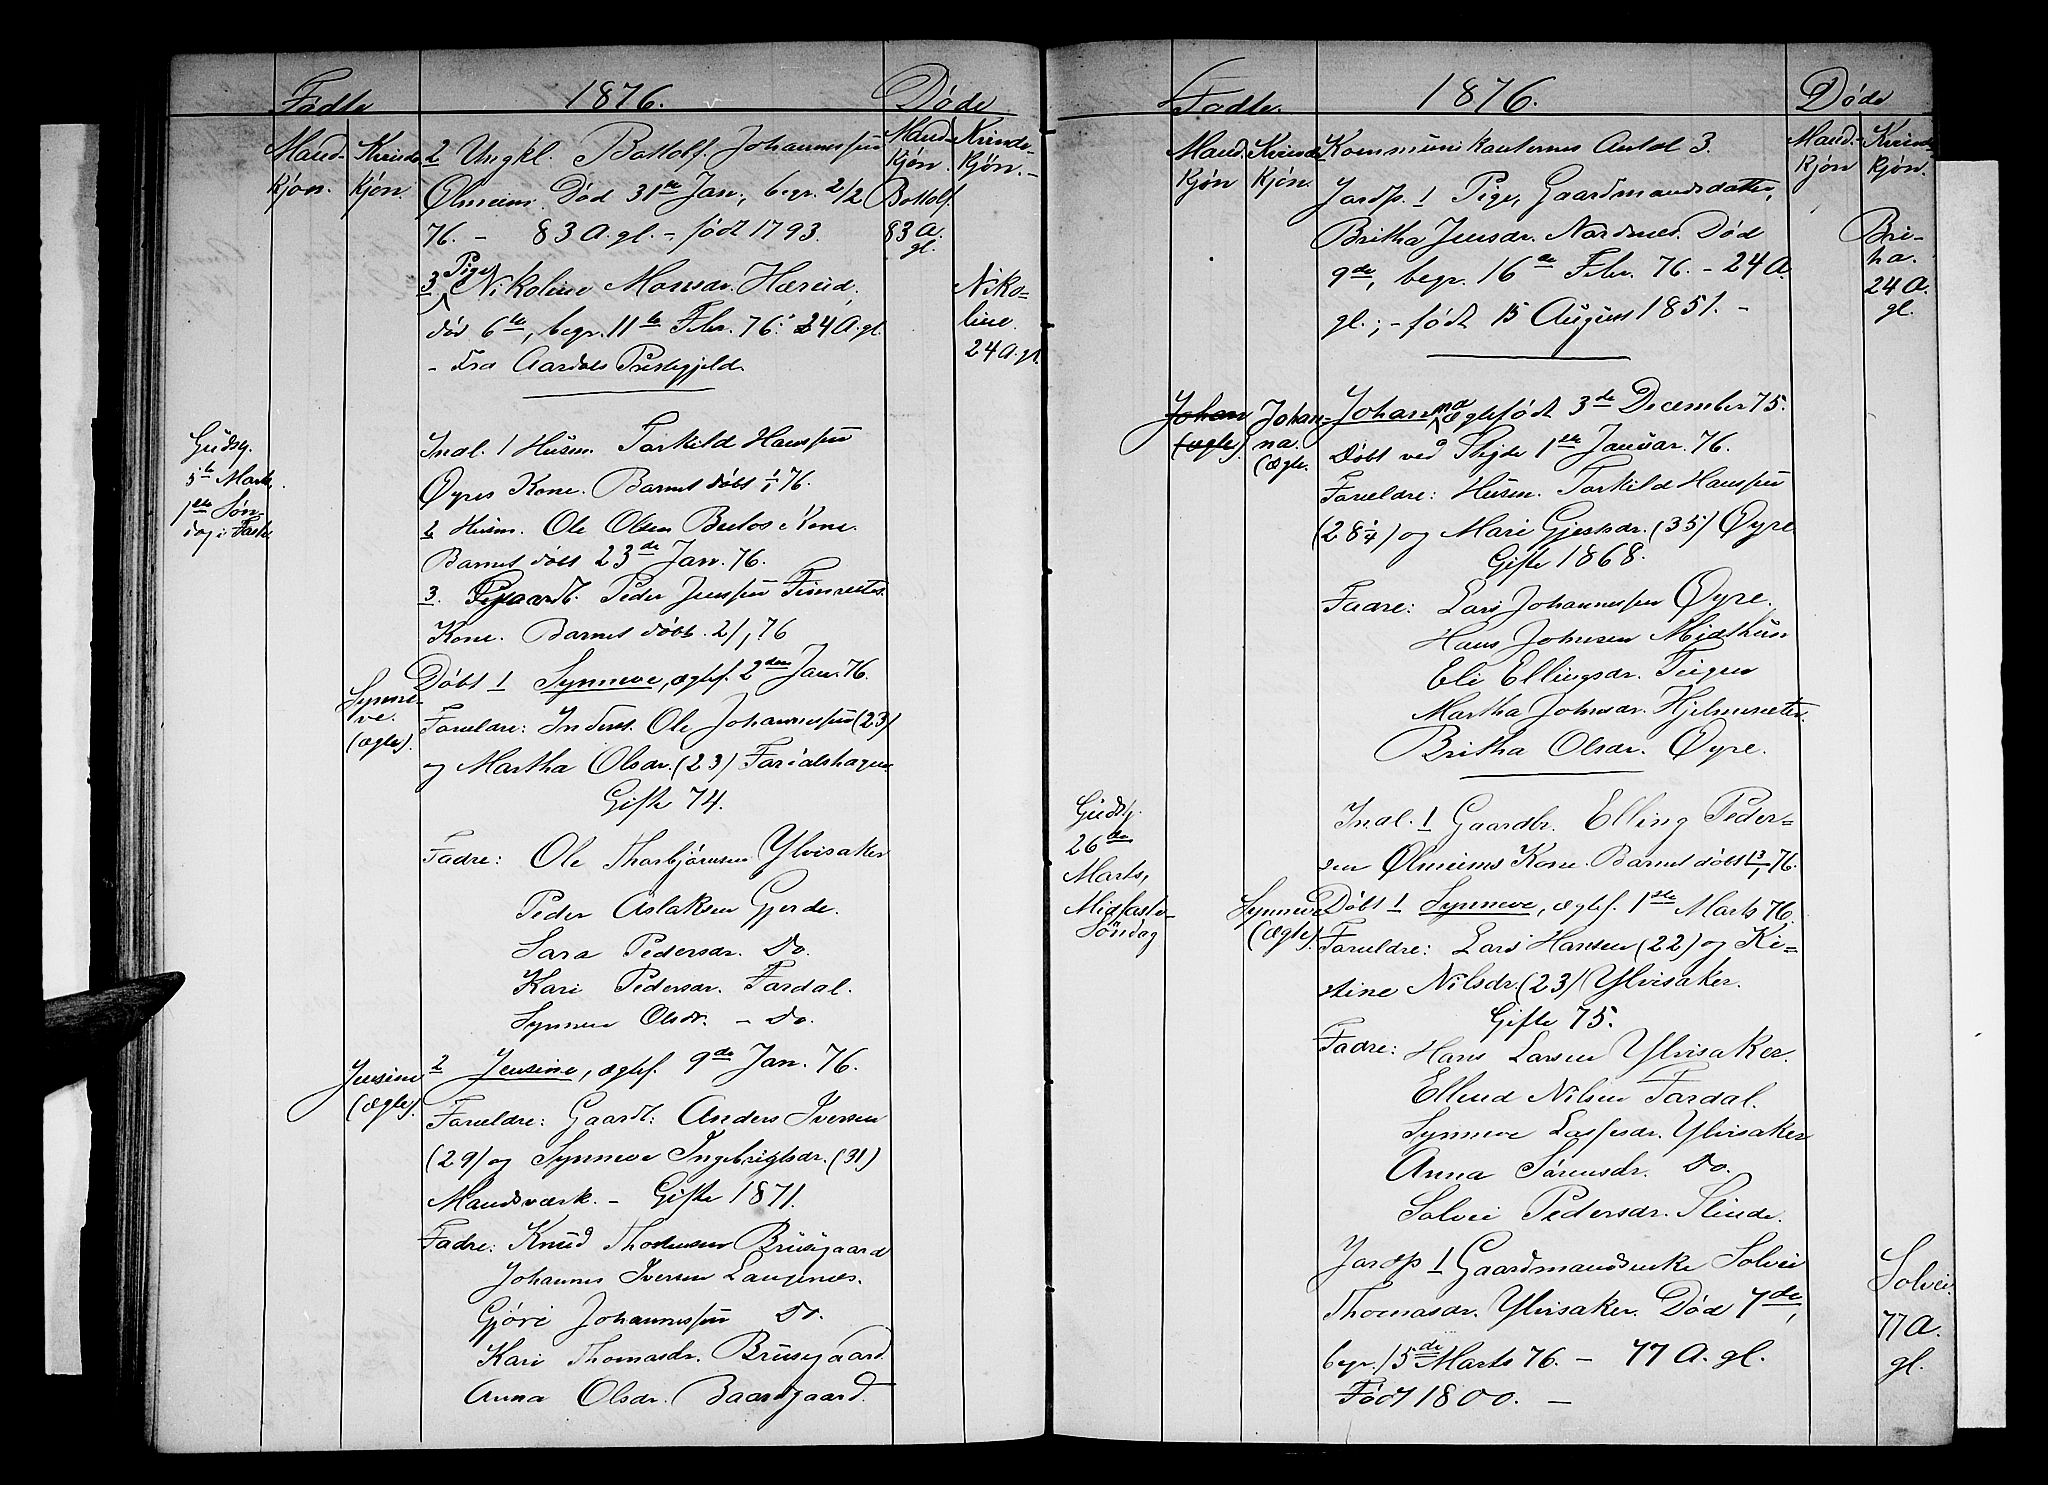 Fødte 1876. Døde
Mand- Kvinde- Mand- Kvinde-
kjøn. kjøn. kjøn. kjøn.
2 Ungkl. Bottolf Johannessen
Ølmeim. Død 31te Jan., begr. 2/2
76. – 83 A. gl. – født 1793.
Bottolf.
83 A.
gl.
3 Pige Nikoline Monsdr. Hæreid,
død 6te, begr. 11te Febr. 76: 24 A. gl.
– fra Aardals Prestegjeld.
Niko-
line.
24 A. gl.
Gudstj.
5te Marts.
1ste Søn-
dag i Faste
Indl. 1 Husm. Torkild Hanssen
Øyres Kone. Barnet døbt 1/1 76.
2 Husm. Ole Olsen Kone.
Barnet døbt 23de Jan. 76.
3. Peder Jenssen Fimreites
Kone. Barnet døbt. 2/1, 76
Synne-
ve.
(ægte).
Døbt 1 Synneve, ægtef. 2den Jan. 76.
Forældre: Inders. Ole Johannessen (23)
og Martha Olsdr. (23) Fardalshagen
Gifte 74.
Fadre: Ole Thorbjørnsen Ylvisaker
Peder Aslaksen Gjerde.
Sara Pedersdr. Do.
Kari Pedersdr. Fardal.
Synneve Olsdr. – Do.
Jensine
(ægte).
2 Jensine, ægtef. 9de Jan. 76.
Forældre: Gaardb. Anders Iversen
(29) og Synneve Ingebrigtsdr. (31)
Mandsværk. – Gifte 1871.
Fadre: Knud Thomassen Brusgaard
Johannes Iversen Laugenæs.
Gjøri Johannessen Do.
Kari Thomasdr. Brusegaard.
Anna Olsdr. Baardgaard.
Fødte. 1876. Døde
Mand- Kvinde- Mand- Kvinde-
kjøn kjøn. kjøn kjøn.
Kommunikanternes Antal 3.
Jordp. 1 Pige, Gaardmandsdatter,
Britha Jensdr. Nordnæs. Død
9de, begr. 16de Febr. 76. – 24 A.
gl.; – født 15 August 1851. –
Bri-
ha.
24 A.
gl.
Johan
(ægte).
Johan-
na.
(ægte.
Johanna ægtefødt 3de December 75.
Døbt ved Stejde 1ste Januar. 76.
Forældre: Husm. Torkild Hanssen
(28 1/4) og Mari Gjestsdr. (35) Øyre.
Gifte 1868.
Fadre: Lars Johannessen Øyre,
Hans Johnsen Midthun
Eli Ellingsdr. Teigen
Martha Johnsdr. Hjelmeseter.
Britha Olsdr. Øyre.
Gudstj.
26de
Marts,
Midfaste-
Søndag
Indl. 1 Gaardbr. Elling Peder-
sen Ølmeims Kone. Barnet døbt 13/1 76.
Synneve
(ægte).
Døbt 1 Synneve, ægtef. 1ste Marts 76.
Forældre: Lars Hansen (22) og Ki-
stine Nilsdr. (23) Ylvisaker.
Gifte 75.
Fadre: Hans Larsen Ylvisaker.
Ellend Nilsen Fardal.
Synneve Lassesdr. Ylvisaker
Anna Sørensdr. Do.
Solvei Pedersdr. Slinde.
Jordp 1 Gaardmandsenke Solvei
Thomasdr. Ylvisaker. Død 7de,
begr. 15de Marts 76. – 77 A. gl.
Født 1800. –
Solvei.
77 A.
gl.